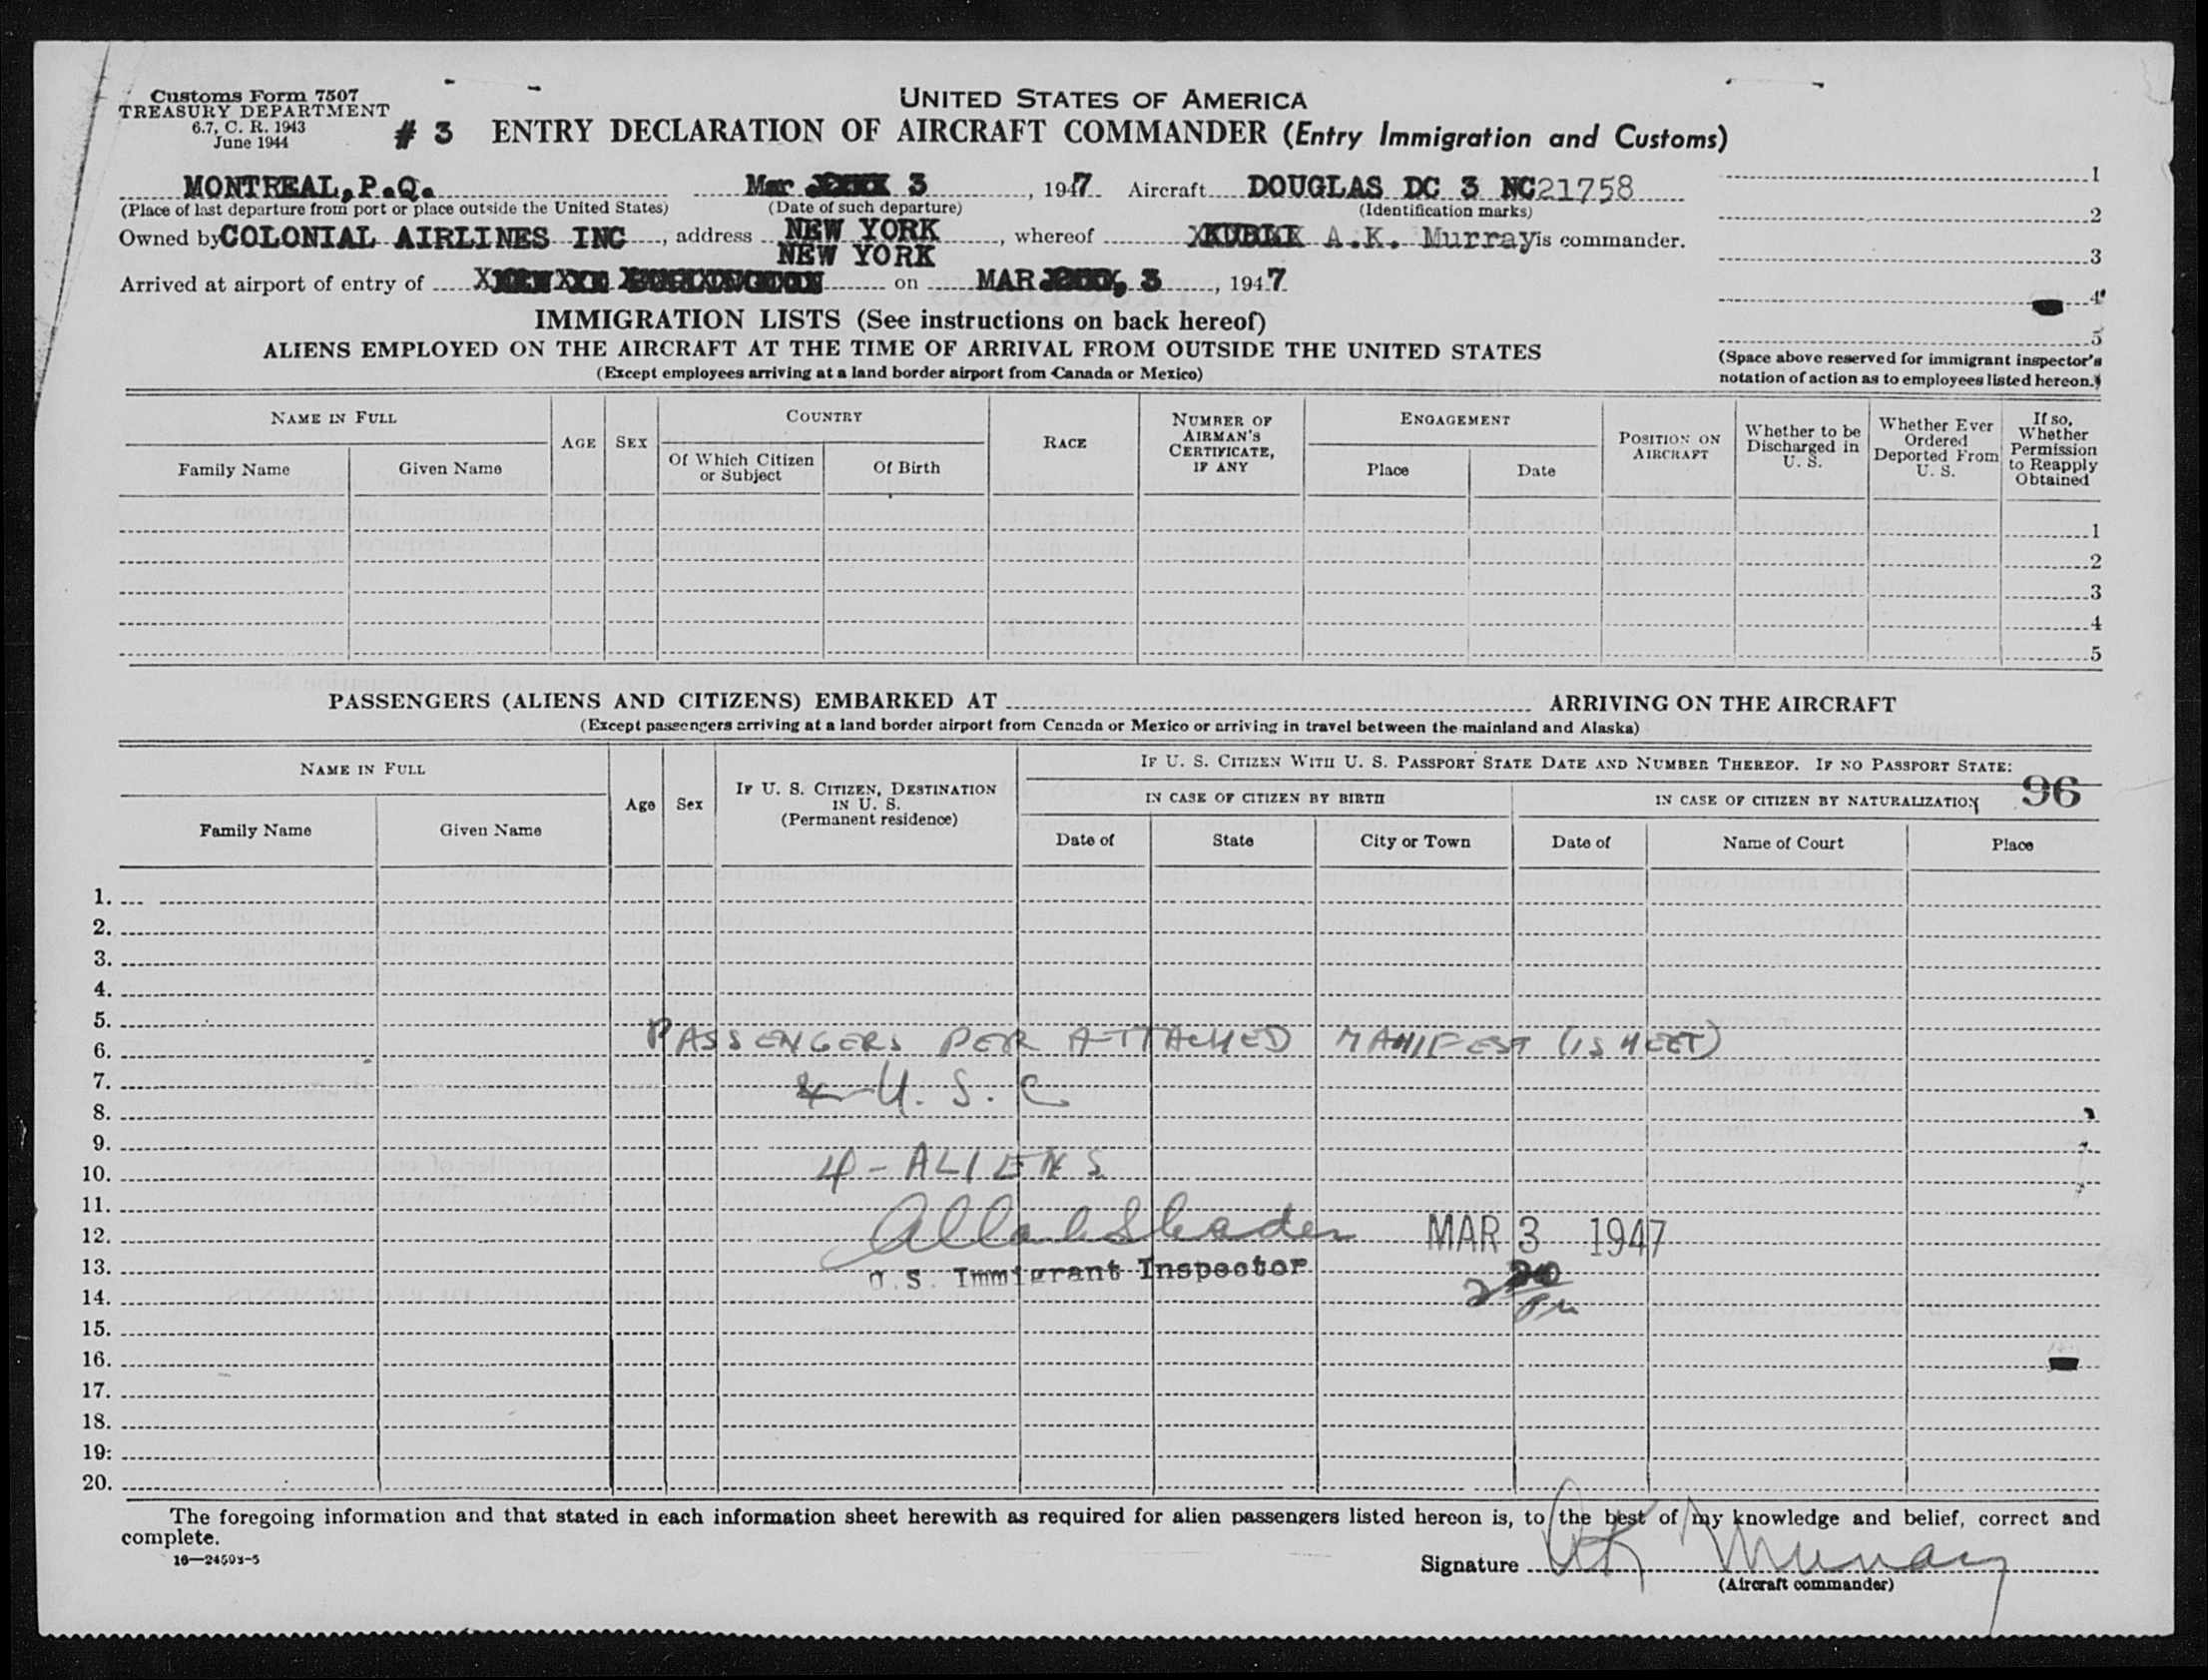 Customs Form 7507
TREASURY DEPARTMENT
6.7, C. R. 1943
June 1944
UNITED STATES OF AMERICA
# 3 ENTRY DECLARATION OF AIRCRAFT COMMANDER (Entry Immigration and Customs)
MONTREAL, P.Q. Mar 3, 1947 Aircraft DOUGLAS DC 3 NC21758
(Place of last departure from port or place outside the United States) (Date of such departure) (Identification marks)
Owned by COLONIAL AIRLINES INC, address NEW YORK, whereof A.K. Murray is commander.
NEW YORK
Arrived at airport of entry of on MAR 3, 1947
1
2
3
4
5
(Space above reserved for immigrant inspector's
notation of action as to employees listed hereon.)
IMMIGRATION LISTS (See instructions on back hereof)
ALIENS EMPLOYED ON THE AIRCRAFT AT THE TIME OF ARRIVAL FROM OUTSIDE THE UNITED STATES
(Except employees arriving at a land border airport from Canada or Mexico)
NAME IN FULL
Family Name Given Name
AGE
SEX
COUNTRY
Of Which Citizen or Subject
Of Birth
RACE
NUMBER OF AIRMAN'S CERTIFICATE, IF ANY
ENGAGEMENT
Place Date
POSITION ON AIRCRAFT
Whether to be Discharged in U. S.
Whether Ever Ordered Deported From U. S.
If so, Whether Permission to Reapply Obtained
1
2
3
4
5
PASSENGERS (ALIENS AND CITIZENS) EMBARKED AT ARRIVING ON THE AIRCRAFT
(Except passengers arriving at a land border airport from Canada or Mexico or arriving in travel between the mainland and Alaska)
NAME IN FULL
Family Name Given Name
Age
Sex
IF U. S. CITIZEN, DESTINATION IN U. S.
(Permanent residence)
IF U. S. CITIZEN WITH U. S. PASSPORT STATE DATE AND NUMBER THEREOF. IF NO PASSPORT STATE:
IN CASE OF CITIZEN BY BIRTH
IN CASE OF CITIZEN BY NATURALIZATION
96
Date of State City or Town Date of Name of Court Place
1.
2.
3.
4.
5.
6. PASSENGERS PER ATTACHED MANIFEST (1 SHEET)
7. U. S. C
8.
9.
10. 4 - ALIENS
11.
12. MAR 3 1947
13. U.S. Immigrant Inspector
14. 2 20 PM
15.
16.
17.
18.
19.
20.
The foregoing information and that stated in each information sheet herewith as required for alien passengers listed hereon is, to the best of my knowledge and belief, correct and
complete.
16—24503-5
Signature AK Murray
(Aircraft commander)